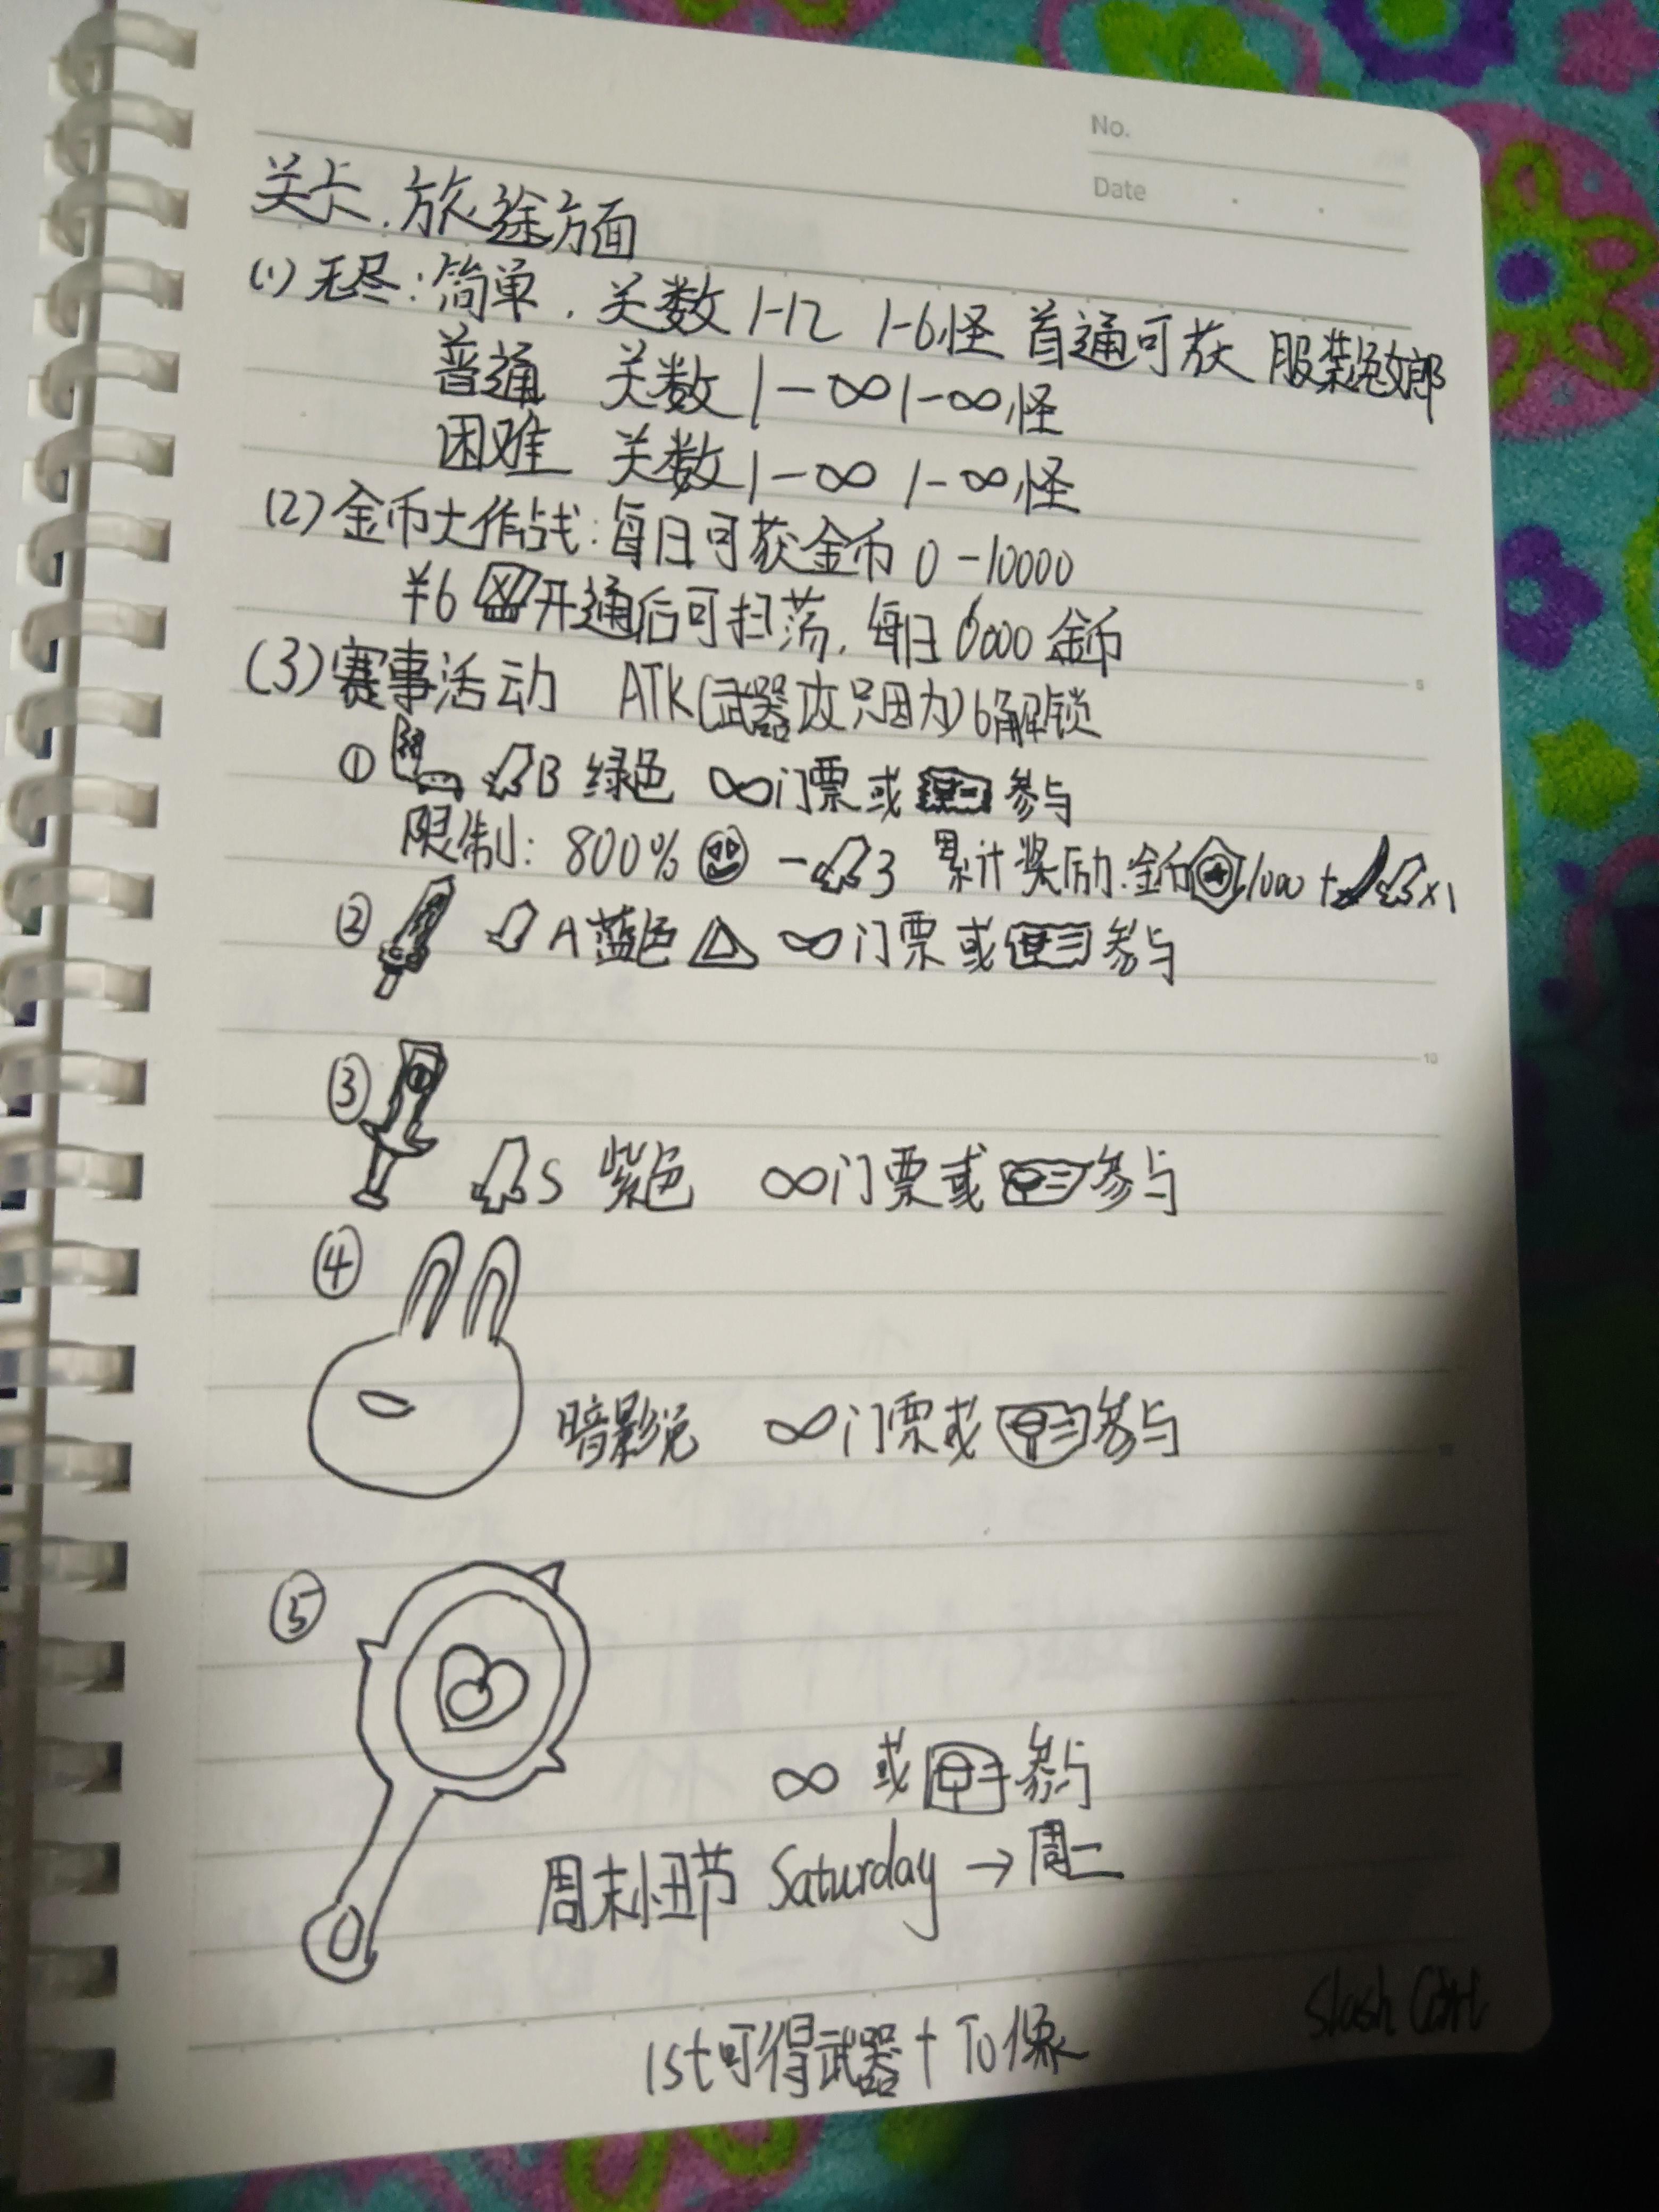 No.
Date
关卡.旅途方面
(1)无尽:简单. 关数 1-12 1-6怪 首通可获 服装兔女郎
普通 关数 1-∞ 1-∞怪
困难 关数 1-∞ 1-∞怪
(2)金币大作战:每日可获金币 0-10000
¥6 开通后可扫荡.每日 6000 金币
(3)赛事活动 ATK(武器攻只因力)6解锁
① B 绿色 ∞门票或 参与
限制: 800% - 3 累计奖励:金币 1000 + ×1
② A 蓝色 ∞门票或 参与
③ S 紫色 ∞门票或 参与
④ 暗影兔 ∞门票或 参与
⑤ ∞ 或 参与
周末狂节 Saturday → 周二
1st可得武器+To像
5
10
Slash